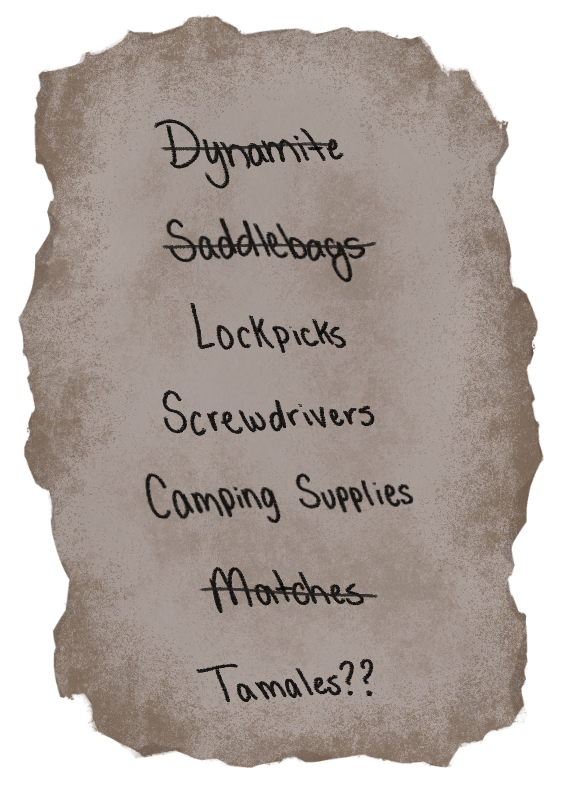 Dynamite
Saddlebags
Lockpicks
Screwdrivers
Camping Supplies
Matches
Tamales??